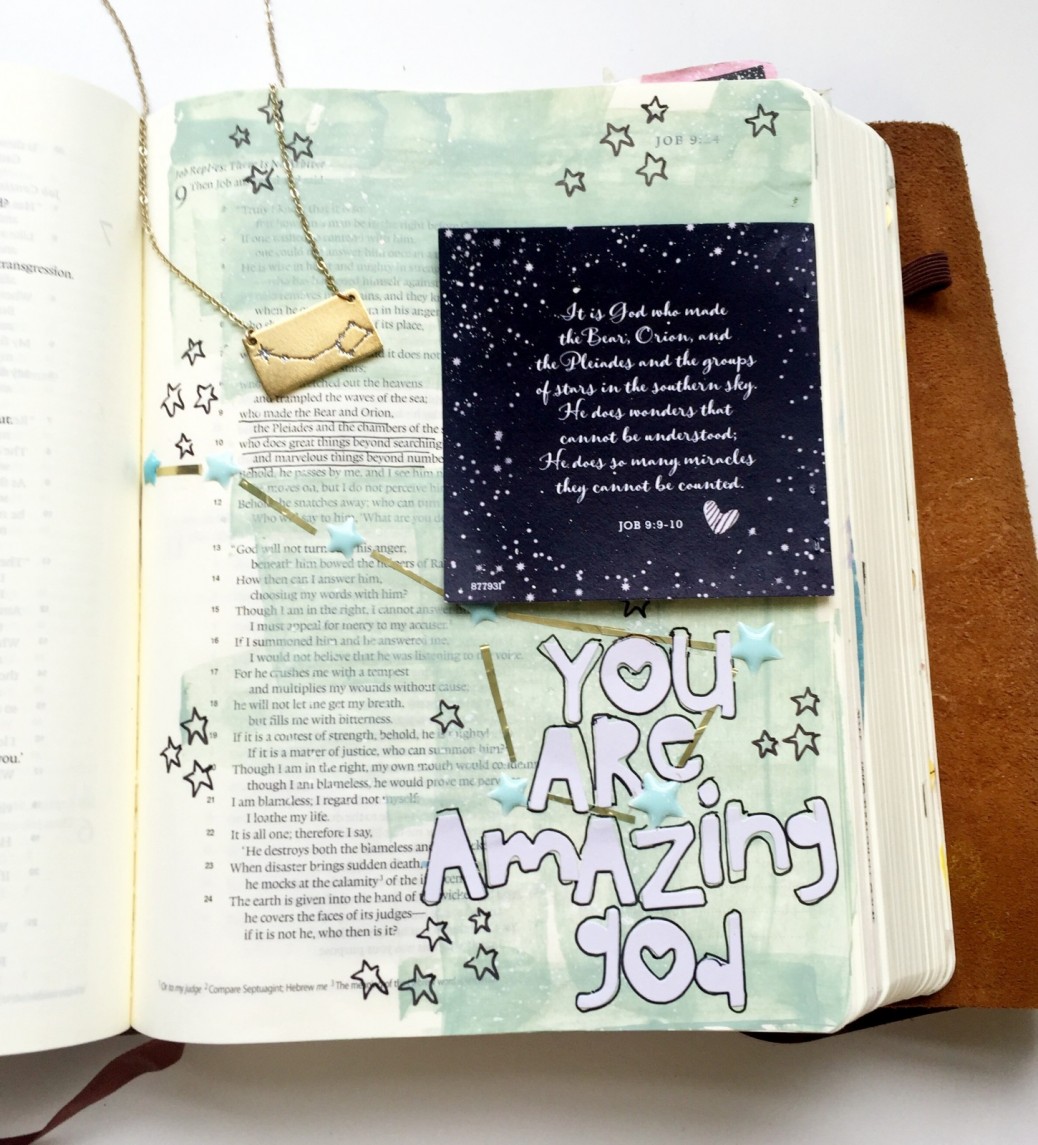 transgression.
JOB 9:
9 Then Job
when he
of its place,
it does not
out the heavens
and trampled the waves of the sea;
9 who made the Bear and Orion,
the Pleiades and the chambers of the
10 who does great things beyond searching
and marvelous things beyond number
Behold, he passes by me, and I see him
moves on, but I do not perceive
12 Behold, he snatches away; who can turn
Who will say to him, 'What are you
13 "God will not turn his anger,
beneath him bowed the helpers of
14 How then can I answer him,
choosing my words with him?
15 Though I am in the right, I cannot answer
I must appeal for mercy to my accuser.
16 If I summoned him and he answered me,
I would not believe that he was listening to my voice.
17 For he crushes me with a tempest
and multiplies my wounds without cause;
18 he will not let me get my breath,
but fills me with bitterness.
19 If it is a contest of strength, behold, he is mighty!
If it is a matter of justice, who can summon him?
Though I am in the right, my own mouth would condemn
though I am blameless, he would prove me
21 I am blameless; I regard not myself;
I loathe my life.
22 It is all one; therefore I say,
'He destroys both the blameless and
23 When disaster brings sudden death,
he mocks at the calamity³ of the
24 The earth is given into the hand of
he covers the faces of its judges—
if it is not he, who then is it?
¹ Or to my judge ² Compare Septuagint; Hebrew me ³ The
It is God who made
the Bear, Orion, and
the Pleiades and the groups
of stars in the southern sky.
He does wonders that
cannot be understood;
He does so many miracles
they cannot be counted.
JOB 9:9-10
877931
YOU
ARe
AmAZing
god